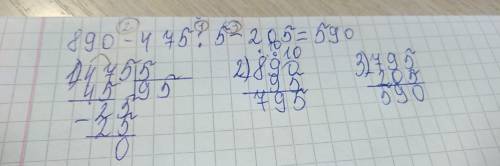 2 1 3
890 - 475 : 5 - 205 = 590
1) 475 | 5
45 | 95
- 25
25
0
2) 890
95
795
10
3) 795
205
590